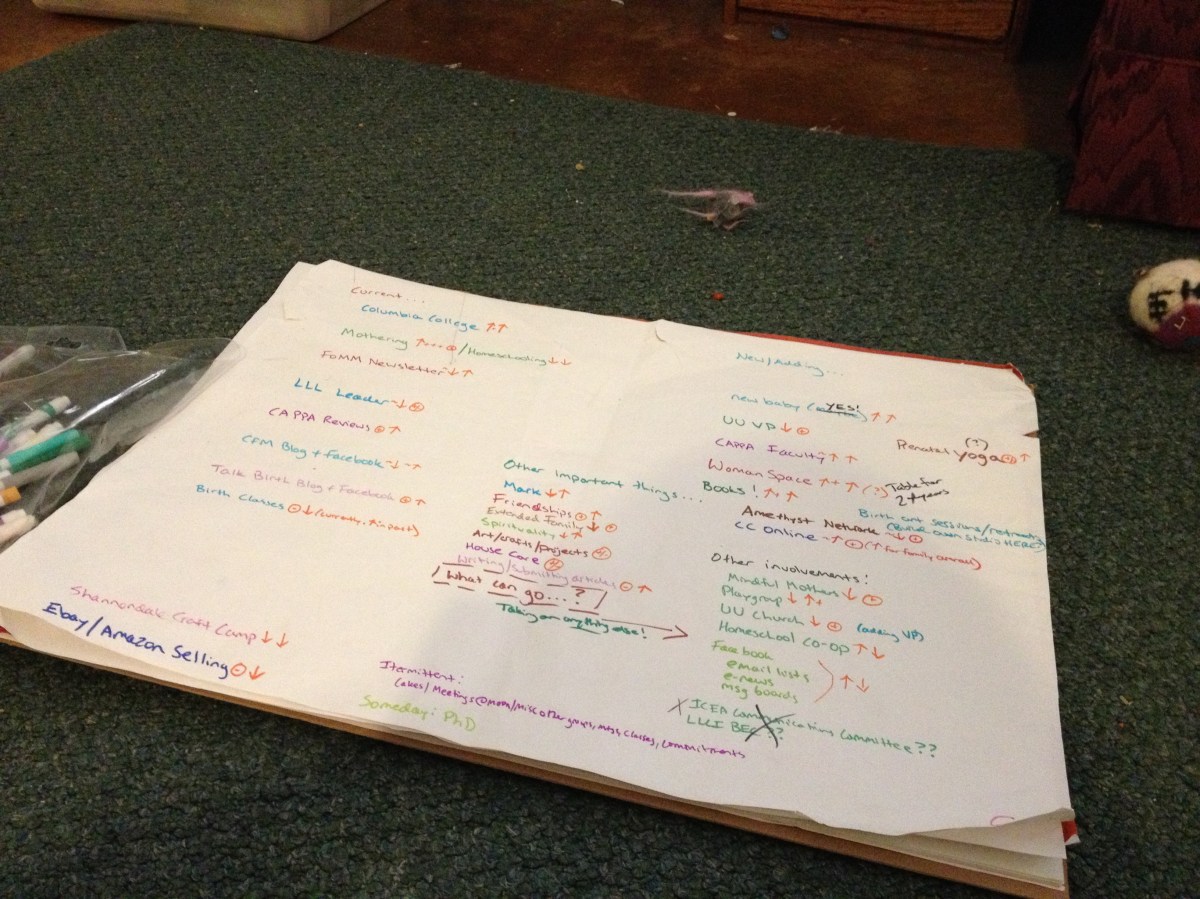 Current...
Columbia College ↑↑
Mothering ↑ /Homeschooling ↓↓
FoMM Newsletter ↓↑
LLL Leader ↓
CAPPA Reviews ↑
CFM Blog + Facebook
Talk Birth Blog + Facebook ↑
Birth Classes ↓ (currently ↑ in part)
Shannondale Craft Camp ↓↓
Ebay/Amazon Selling ↓
Other important things...
Mark ↓↑
Friendships ↑
Extended Family ↓
Spirituality ↓↑
Art/crafts/projects
House Care
Writing/submitting articles ↑
What can go...?
Taking on anything else!
Itermittent:
Cakes/Meetings@Mocha/Misc other groups, mtgs, classes, commitments
Someday: PhD
New/Adding...
new baby (YES!) ↑↑
UU VP ↓
CAPPA Faculty ↑↑
Prenatal yoga (?) ↑
Woman Space ↑+↑ (?) Table for
2+ years
Books! ↑+↑
Amethyst Network ↓
Birth art sessions/
CC Online ↑ (↑ for family overall)
Other involvements:
Mindful Mothers ↓
Playgroup ↓ ↑
UU Church ↓ (adding VP)
Homeschool co-op ↑↓
Facebook
email lists
e-news
msg boards
↑↓
X ICEA Communications Committee??
??